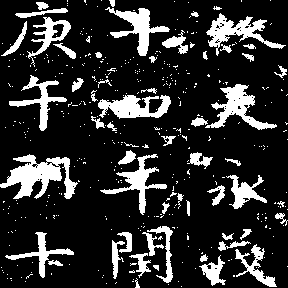 終天永茂
十四年閏
庚午朔十